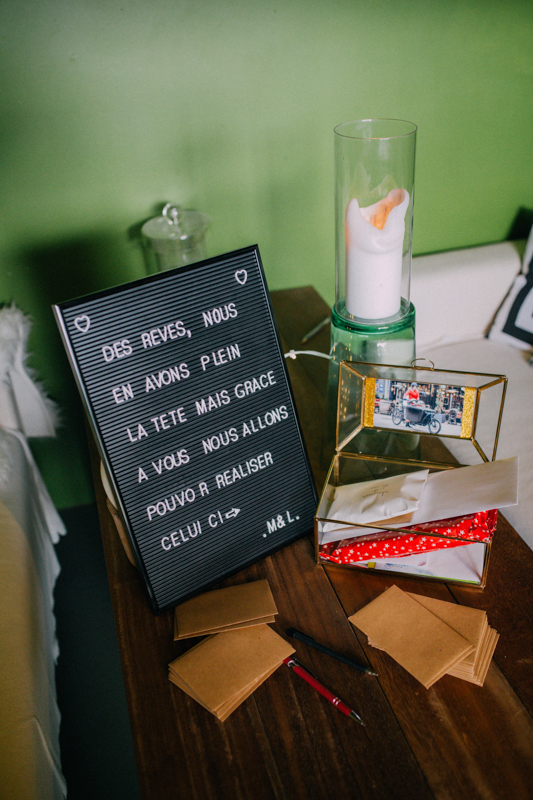 DES REVES, NOUS
EN AVONS PLEIN
LA TETE MAIS GRACE
A VOUS NOUS ALLONS
POUVO R REALISER
CELUI CI⇨
.M&L.